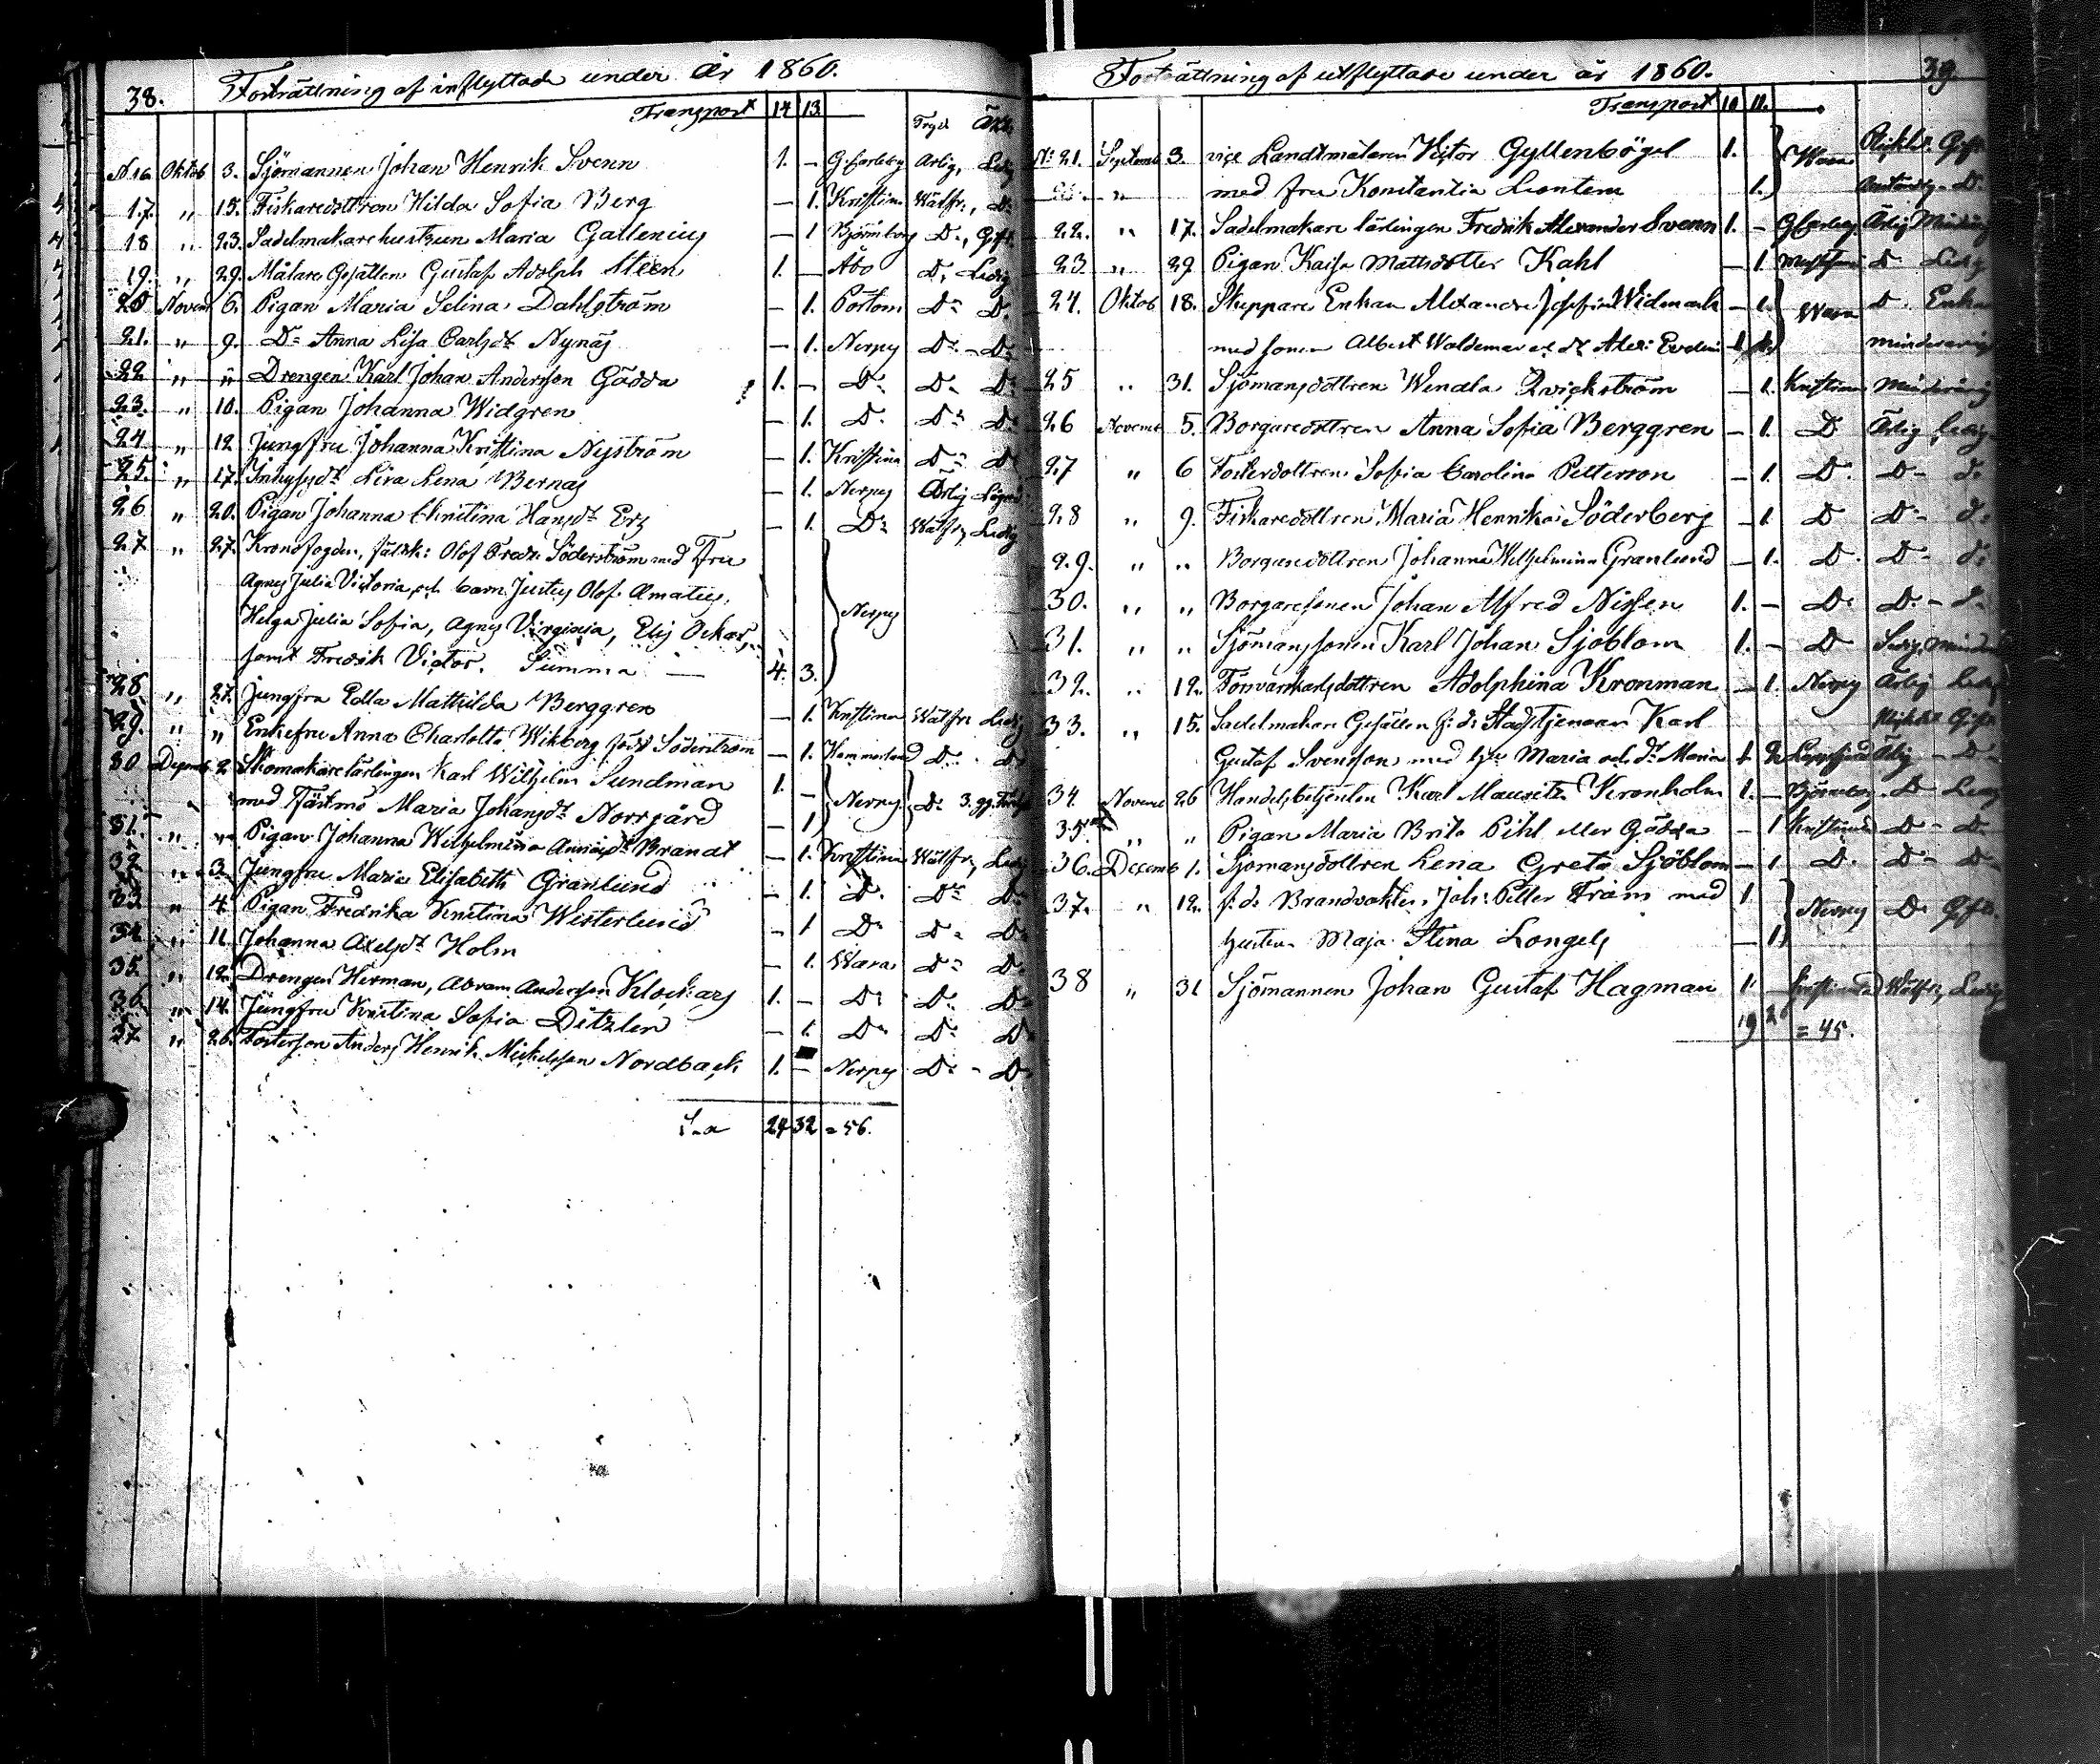 38. Fortsättning af inflyttade under År 1860.
Transport 14 13
Frejd Äkt.
No 16 Oktob 3. Sjömannen Johan Henrik Svenn 1. - G:Carleby Ärlig, Ledig
17. " 15. Fiskaredottron Hilda Sofia Berg - 1. Kristin Wälfr:, D:
18 " 23. Sadelmakarehustrun Maria Gallenius - 1 Björneborg D:, Gift.
19. " 29. Målare Gesällen Gustaf Adolph Steen 1. - Åbo D: Ledig
20 Novem 6. Pigan Maria Selina Dahlström - 1. Pörtom D: D.
21. " 9. D: Anna Lisa Carlsdr Nynäs - 1. Nerpes D: - D:
22 " " Drengen Karl Johan Andersson Gädda 1. - D: D: D:
23. " 10. Pigan Johanna Widgren - 1. D: D: D:
24 " 12 Jungfru Johanna Kristina Nyström - 1. Kristina D: D:
25. " 17. Inhysesdr Lisa Lena Bernas - 1. Nerpes Ärlig
26 " 20. Pigan Johanna Christina Hansdr Ers - 1. D: Wälfr, Ledig
27 " 27. Kronofogden, Olof Fredr: Söderström med Fru
Agnes Julia Victoria, och barn Justus Olof Amatus,
Helga Julia Sofia, Agnes Virginia, Elis Oskar, Nerpes
samt Fredrik Victor. Summa - 4. 3.
28. " 27. Jungfru Edla Mathilda Berggren - 1. Kristina Wälfr: Ledig
29. " " Enkefru Anna Charlotta Wikberg född Söderström - 1. D: D:
30 Decemb 2 Skomakarelärlingen Karl Wilhelm Sundman 1. -
med Fästmö Maria Johansdr Norrgård - 1 Nerpes D: 3. gg.
31. " " Pigan Johanna Wilhelmina Brandt - 1. Kristina Wälfr, Ledig
32. " 3. Jungfru Maria Elisabeth Granlund - 1. D: D: D:
33 " 4. Pigan Fredrika Kristina Westerlund - 1 D: D: D:
34 " 11. Johanna Axelsdr Holm - 1. Wasa D: D:
35. " 12. Drengen Herman, Abram Andersson Klockars 1. - D: D: D:
36. " 14. Jungfru Kristina Sofia Ditzlen - 1. D: D: D
37. " 26. Fosterson Anders Henrik Mickelsson Nordback 1. - Nerpes D: - D:
S-a 24 32 = 56.
Fortsättning af utflyttade under år 1860. 39.
Transport 10 11.
No: 21. Septemb 3. vice Landtmätaren Victor Gyllenbögel 1. Wasa Gift
" med fru Konstantia Lontein 1. D.
22. " 17. Sadelmakare lärlingen Fredrik Alexander Svenn 1. - G Carleby Ärlig
23 " 29 Pigan Kaisa Mattsdotter Kahl - 1. D Ledig
24. Oktob 18. Skeppare Enkan Alexandra Josefina Widmark - 1. Wasa D. Enka
med sonen Albert Waldemar
25 " 31. Sjömansdottren Wendla Qvickström - 1. Kristina Minderårig
26 Novemb 5. Borgaredottren Anna Sofia Berggren - 1. D Ärlig Ledig
27 " 6 Fosterdottren Sofia Carolina Petterson - 1. D: D- d:
28 " 9. Fiskaredottren Maria Henrika Söderberg - 1 D D: - d:
29. " " Borgaredottren Johanna Wilhelmina Granlund - 1. D. D- d:
30. " " Borgaresonen Johan Alfred Nissen 1. - D: D. - d.
31. " " Sjömanssonen Karl Johan Sjöblom 1. - D
32. " 12. Adolphina Kronman - 1. Nerpes Ärlig Ledig
33. " 15. Sadelmakare Gesällen f: d: Stadstjenaren Karl Gift
Gustaf Svensson med hu Maria och dr Maria 1 2 Lappfjerd Ärlig - D -
34. Novemb 26 Handelsbetjenten Karl Mauritz Kronholm 1. - Björneborg. D Ledig
35. " " Pigan Maria Brita Pihl eller Gädda - 1 Kristina D - D
36. Decemb 1. Sjömansdottren Lena Greta Sjöblom - 1 D. D - D
37. " 12. f: d: Brandvakten, Joh: Petter Fram med 1 Nerpes D: Gifte
hustrun Maja Stina Longels - 1
38 " 31 Sjömannen Johan Gustaf Hagman 1. Wälfr, Ledig
19 26 = 45.